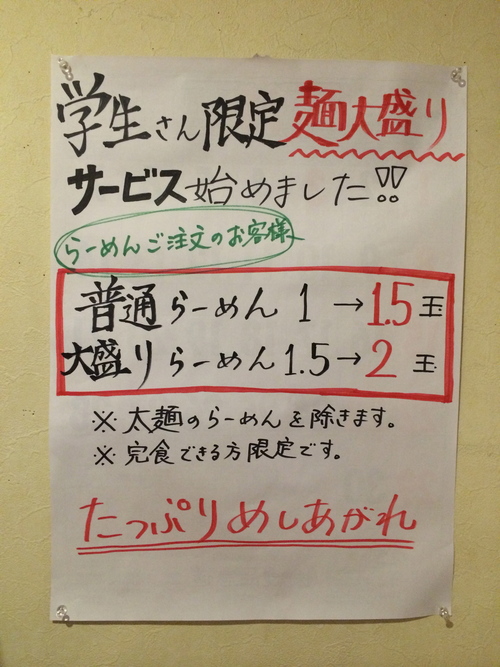 学生さん限定麺大盛り
サービス始めました!!
らーめんご注文のお客様
普通らーめん 1 → 1.5玉
大盛りらーめん 1.5 → 2 玉
※ 太麺のらーめんを除きます。
※ 完食できる方限定です。
たっぷりめしあがれ